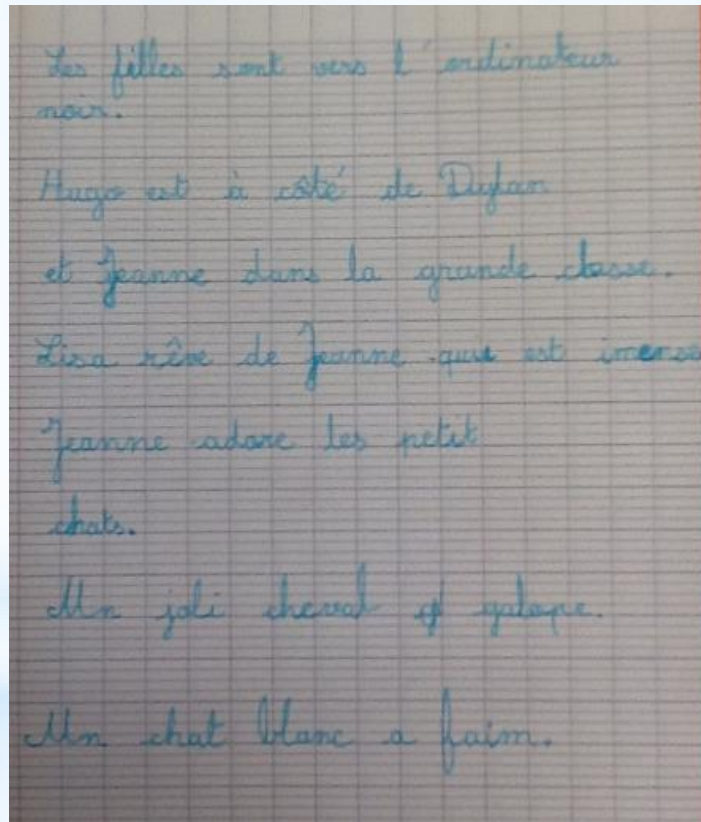 Les filles sont vers l'ordinateur
noir.
Hugo est à côté de Dylan
et Jeanne dans la grande classe.
Lisa rêve de Jeanne qui est imense
Jeanne adore les petit
chats.
Un joli cheval galope.
Un chat blanc a faim.